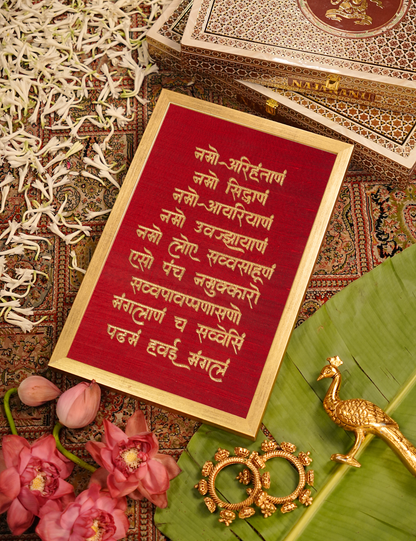 नमो-अरिहंताणं
नमो सिद्धाणं
नमो-आयरियाणं
नमो उवज्झायाणं
नमो लोए सव्वसाहूणं
एसो पंच नमुक्कारो
सव्वपावप्पणासणो
मंगलाणं च सव्वेसिं
पढमं हवई मंगलं